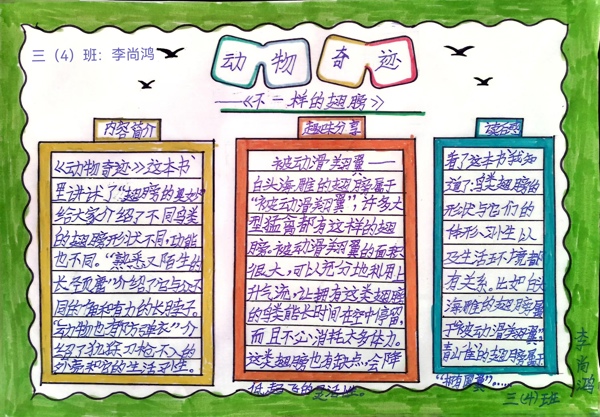 三（4）班：李尚鸿
动物奇迹
——《不一样的翅膀》
内容简介
《动物奇迹》这本书
里讲述了“翅膀的奥妙”
给大家介绍了不同鸟类
的翅膀形状不同，功能
也不同。“熟悉又陌生的
长颈鹿”介绍了它与众不
同的角和有力的长脖子。
“动物也有防弹衣”介
绍了犰狳刀枪不入的
和它的生活习性。
趣味分享
被动滑翔翼——
白头海雕的翅膀属于
“被动滑翔翼”，许多大
型猛禽都有这样的翅
膀。被动滑翔翼的面积
很大，可以充分地利用上
升气流，让拥有这类翅膀
的鸟类能长时间在空中停留，
而且不必消耗太多体力。
这类翅膀也有缺点，会降
低起飞的灵活性。
读后感
看了这本书我知
道了：鸟类翅膀的
形状与它们的
体形、习性以
及生活环境都
有关系。比如白头
海雕的翅膀属
于“被动滑翔翼”，
青山雀的翅膀属于
“椭圆翼”……
三（4）班
李尚鸿